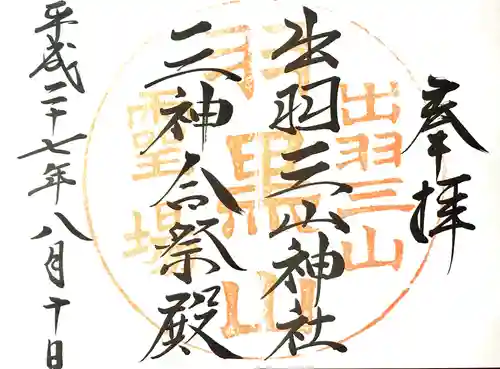 奉拝
出羽三山神社
三神合祭殿
平成二十七年八月十日
出羽三山
羽黒山
霊場